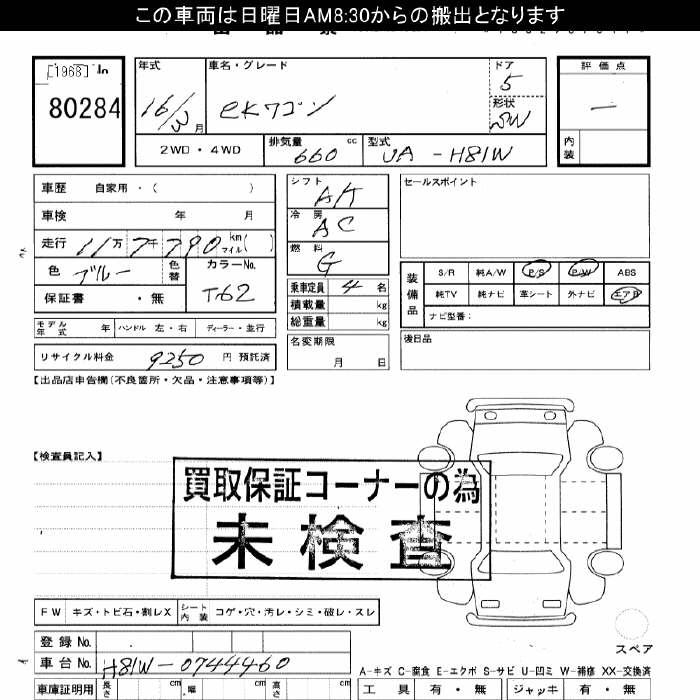 この車両は日曜日AM8:30からの搬出となります
[1968] In
80284
年式 車名・グレード ドア 評価点
16/3月 eKワゴン 5 形状 SW 一
2WD・4WD 排気量 660 cc 型式 UA-H81W 内装
車歴 自家用・( )
車検 年 月
走行 11万7千790 km マイル( )
色 ブルー 色替 カラーNo. T62
保証書 ・無
モデル年式 年 ハンドル 左・右 ディーラー・並行
リサイクル料金 9250 円 預託済
シフト AT
冷房 AC
燃料 G
乗車定員 4 名
積載量 kg
総重量 kg
名変期限
月 日
セールスポイント
装備品 S/R 純A/W P/S P/W ABS
純TV 純ナビ 革シート 外ナビ エアB
ナビ型番:
後日品
【出品店申告欄(不良箇所・欠品・注意事項等)】
【検査員記入】
買取保証コーナーの為
未検査
FW キズ・トビ石・割レX シート内装 コゲ・穴・汚レ・シミ・破レ・スレ
スペア
登録 No.
車台 No. H81W-0744460
A-キズ C-腐食 E-エクボ S-サビ U-凹ミ W-補修 XX-交換済
車庫証明用 長さ cm 幅 cm 高さ cm 工具 有・無 ジャッキ 有・無